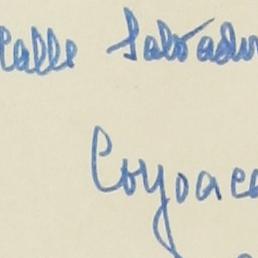 Calle Salvador
Coyoac